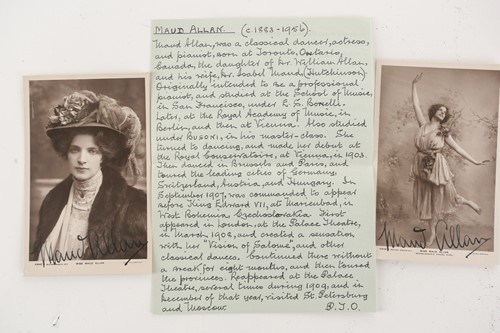 MAUD ALLAN. (c.1883-1956).
Maud Allan, was a classical dancer, actress,
and pianist, born at Toronto, Ontario,
Canada, the daughter of Dr. William Allan,
and his wife, Dr. Isabel Maud, (Hutchinson).
Originally intended to be a professional
pianist, and studied at the School of Music,
in San Francisco, under E. S. Bonelli.
Later, at the Royal Academy of Music, in
Berlin, and then at Vienna. Also studied
under BUSONI, in his master-class. She
turned to dancing, and made her debut at
the Royal Conservatoire, at Vienna, in 1903.
Then danced in Brussels and Paris, and
toured the leading cities of Germany,
Switzerland, Austria, and Hungary. In
September 1907, was commanded to appear
before King Edward VII, at Marienbad, in
West Bohemia, Czechoslovakia. First
appeared in London, at the Palace Theatre,
in March 1908, and created a sensation
with her "Vision of Salome", and other
classical dances. Continued there without
a break for eight months, and then toured
the provinces. Reappeared at the Palace
Theatre, several times during 1909, and in
December of that year, visited St. Petersburg
and Moscow. P.T.O.
Maud Allan
MISS MAUD ALLAN
Maud Allan
MISS MAUD ALLAN